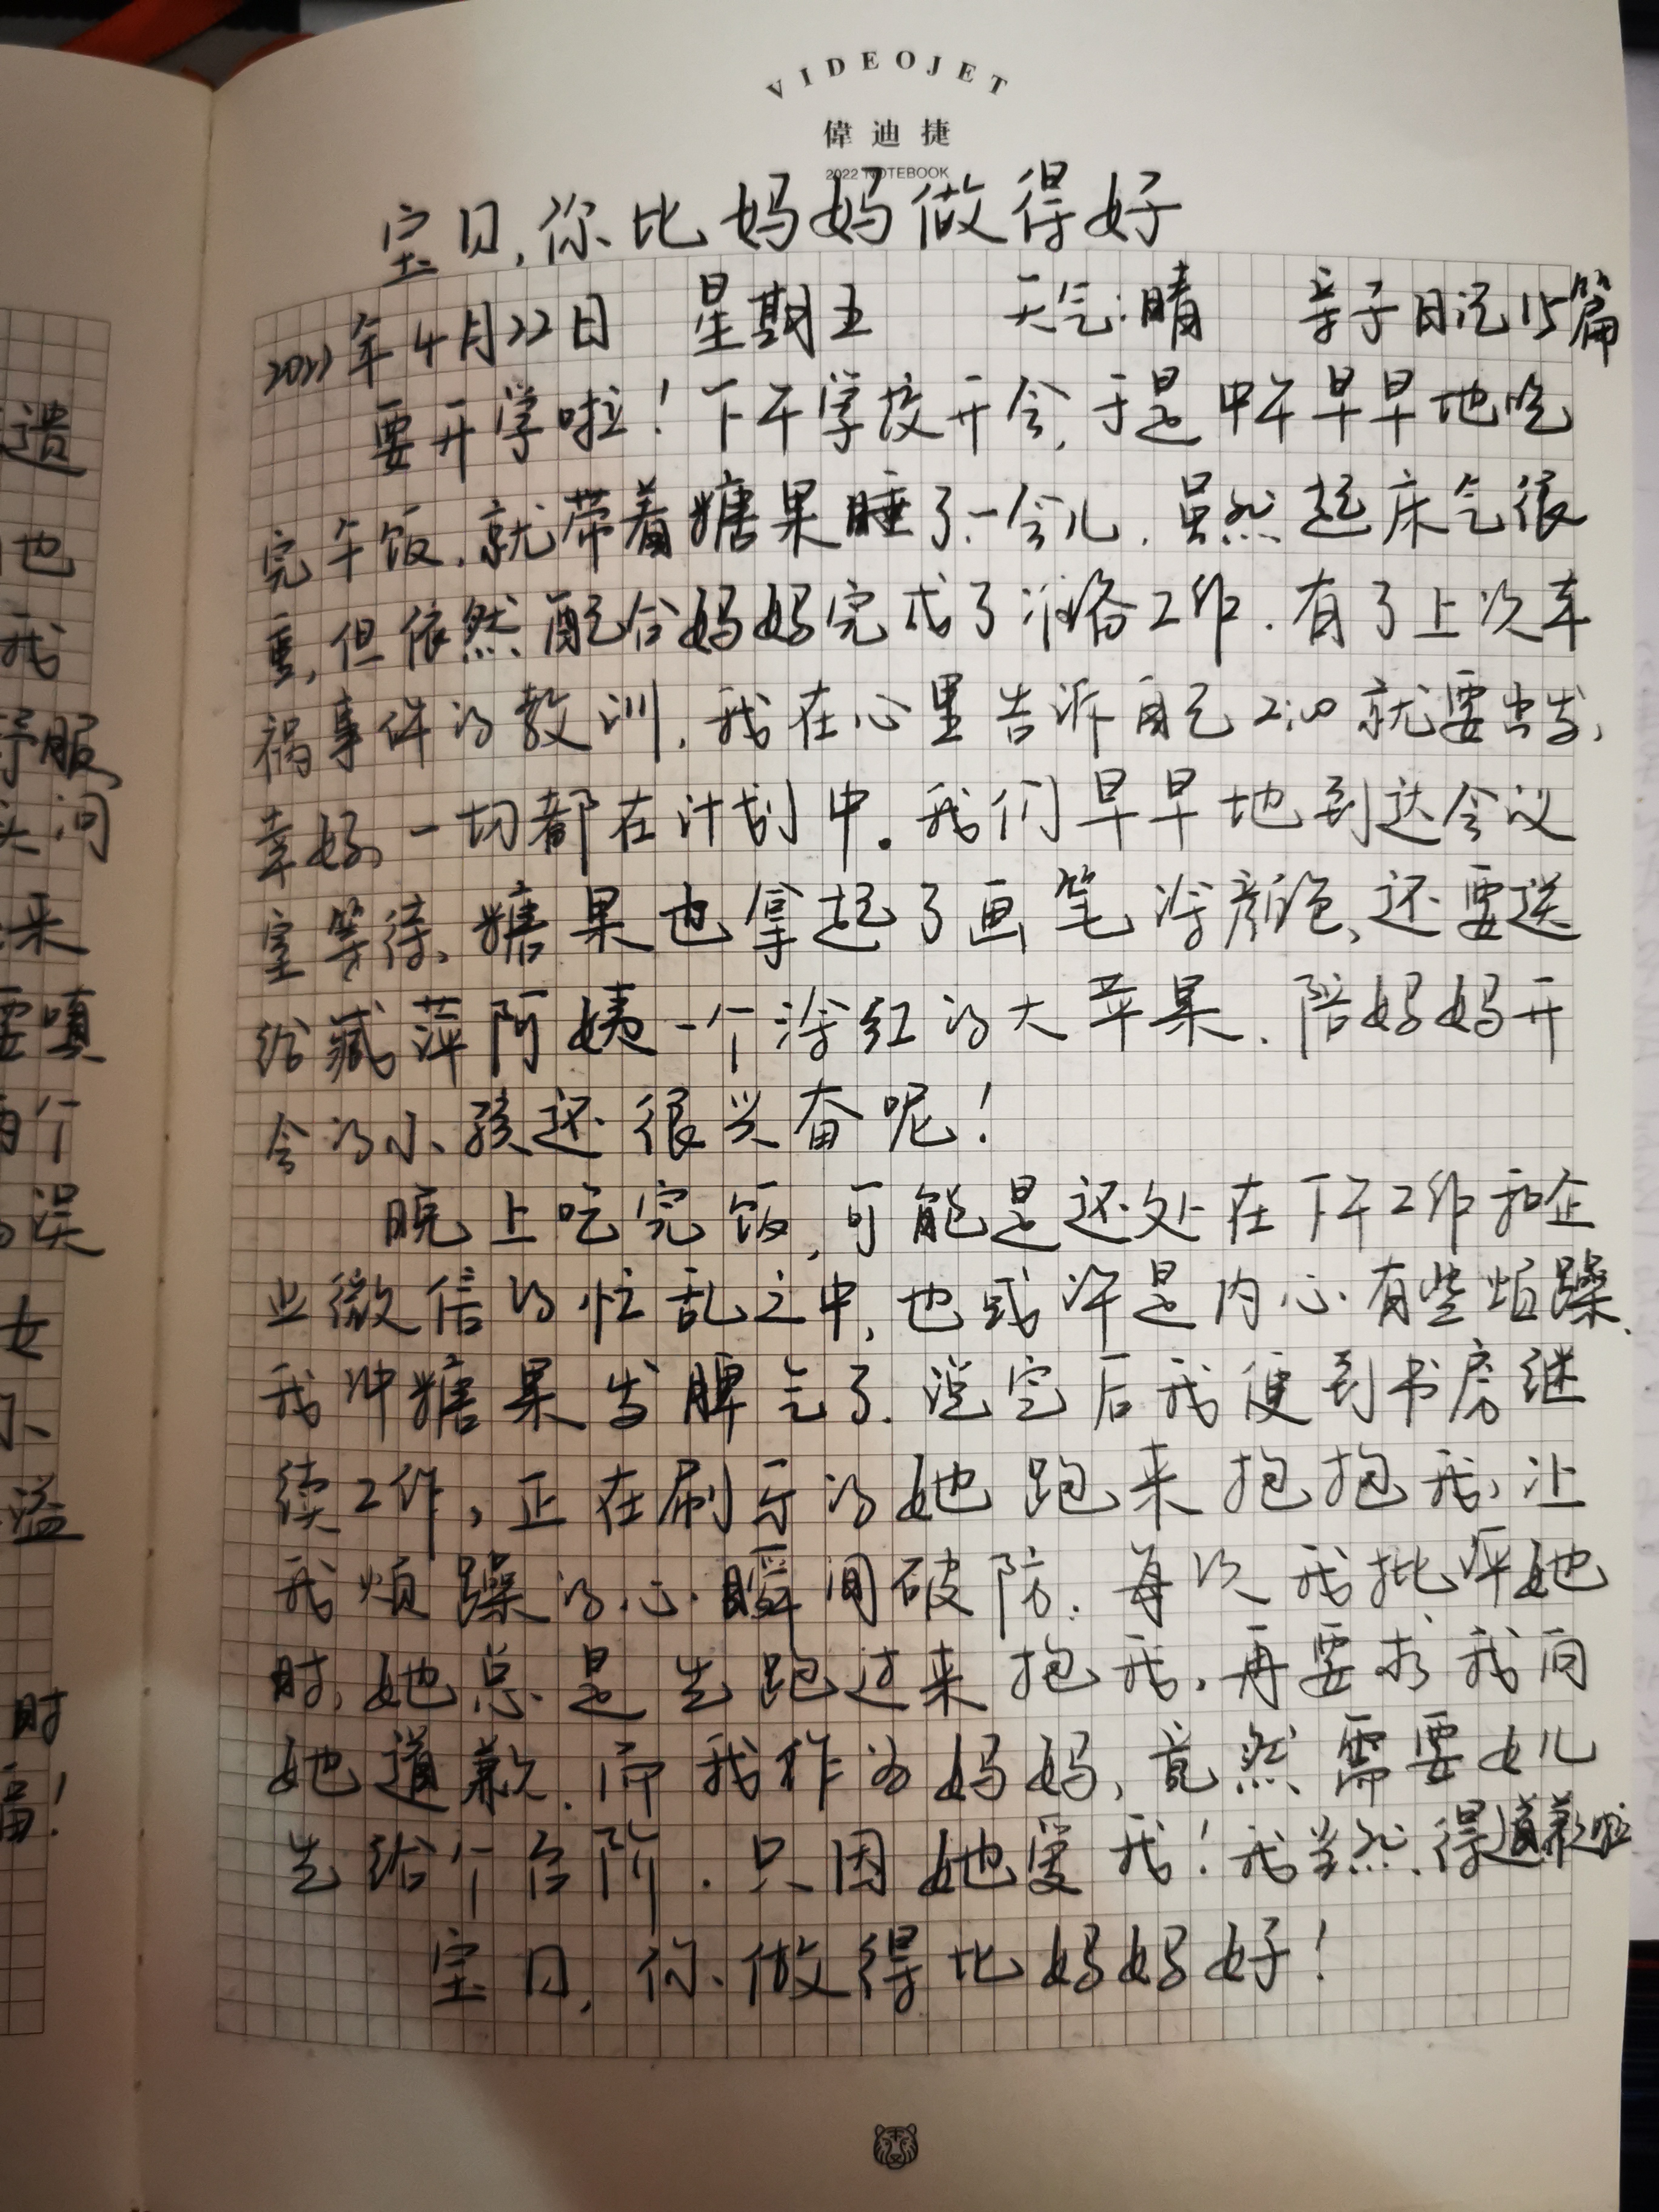 VIDEOJET
偉迪捷
2022 NOTEBOOK
宝贝,你比妈妈做得好
2022年4月22日 星期五 天气:晴 亲子日记15篇
要开学啦!下午学校开会,于是中午早早地吃
完午饭,就带着糖果睡了一会儿,虽然起床气很
重,但依然配合妈妈完成了准备工作.有了上次车
祸事件的教训,我在心里告诉自己2:00就要出发,
幸好,一切都在计划中。我们早早地到达会议
室等待,糖果也拿起了画笔涂颜色,还要送
给臧萍阿姨一个涂红的大苹果.陪妈妈开
会的小孩还很兴奋呢!
晚上吃完饭,可能是还处在下午工作和企
业微信的忙乱之中,也或许是内心有些烦躁,
我冲糖果发脾气了.说完后我便到书房继
续工作,正在刷牙的她跑来抱抱我,让
我烦躁的心瞬间破防.每次我批评她
时,她总是先跑过来抱我,再要求我向
她道歉.而我作为妈妈,竟然需要女儿
先给个台阶.只因她爱我!我当然得道歉啦
宝贝,你做得比妈妈好!
遗
也
我
舒服
问
来
要嗔
两个
误
女
溢
时